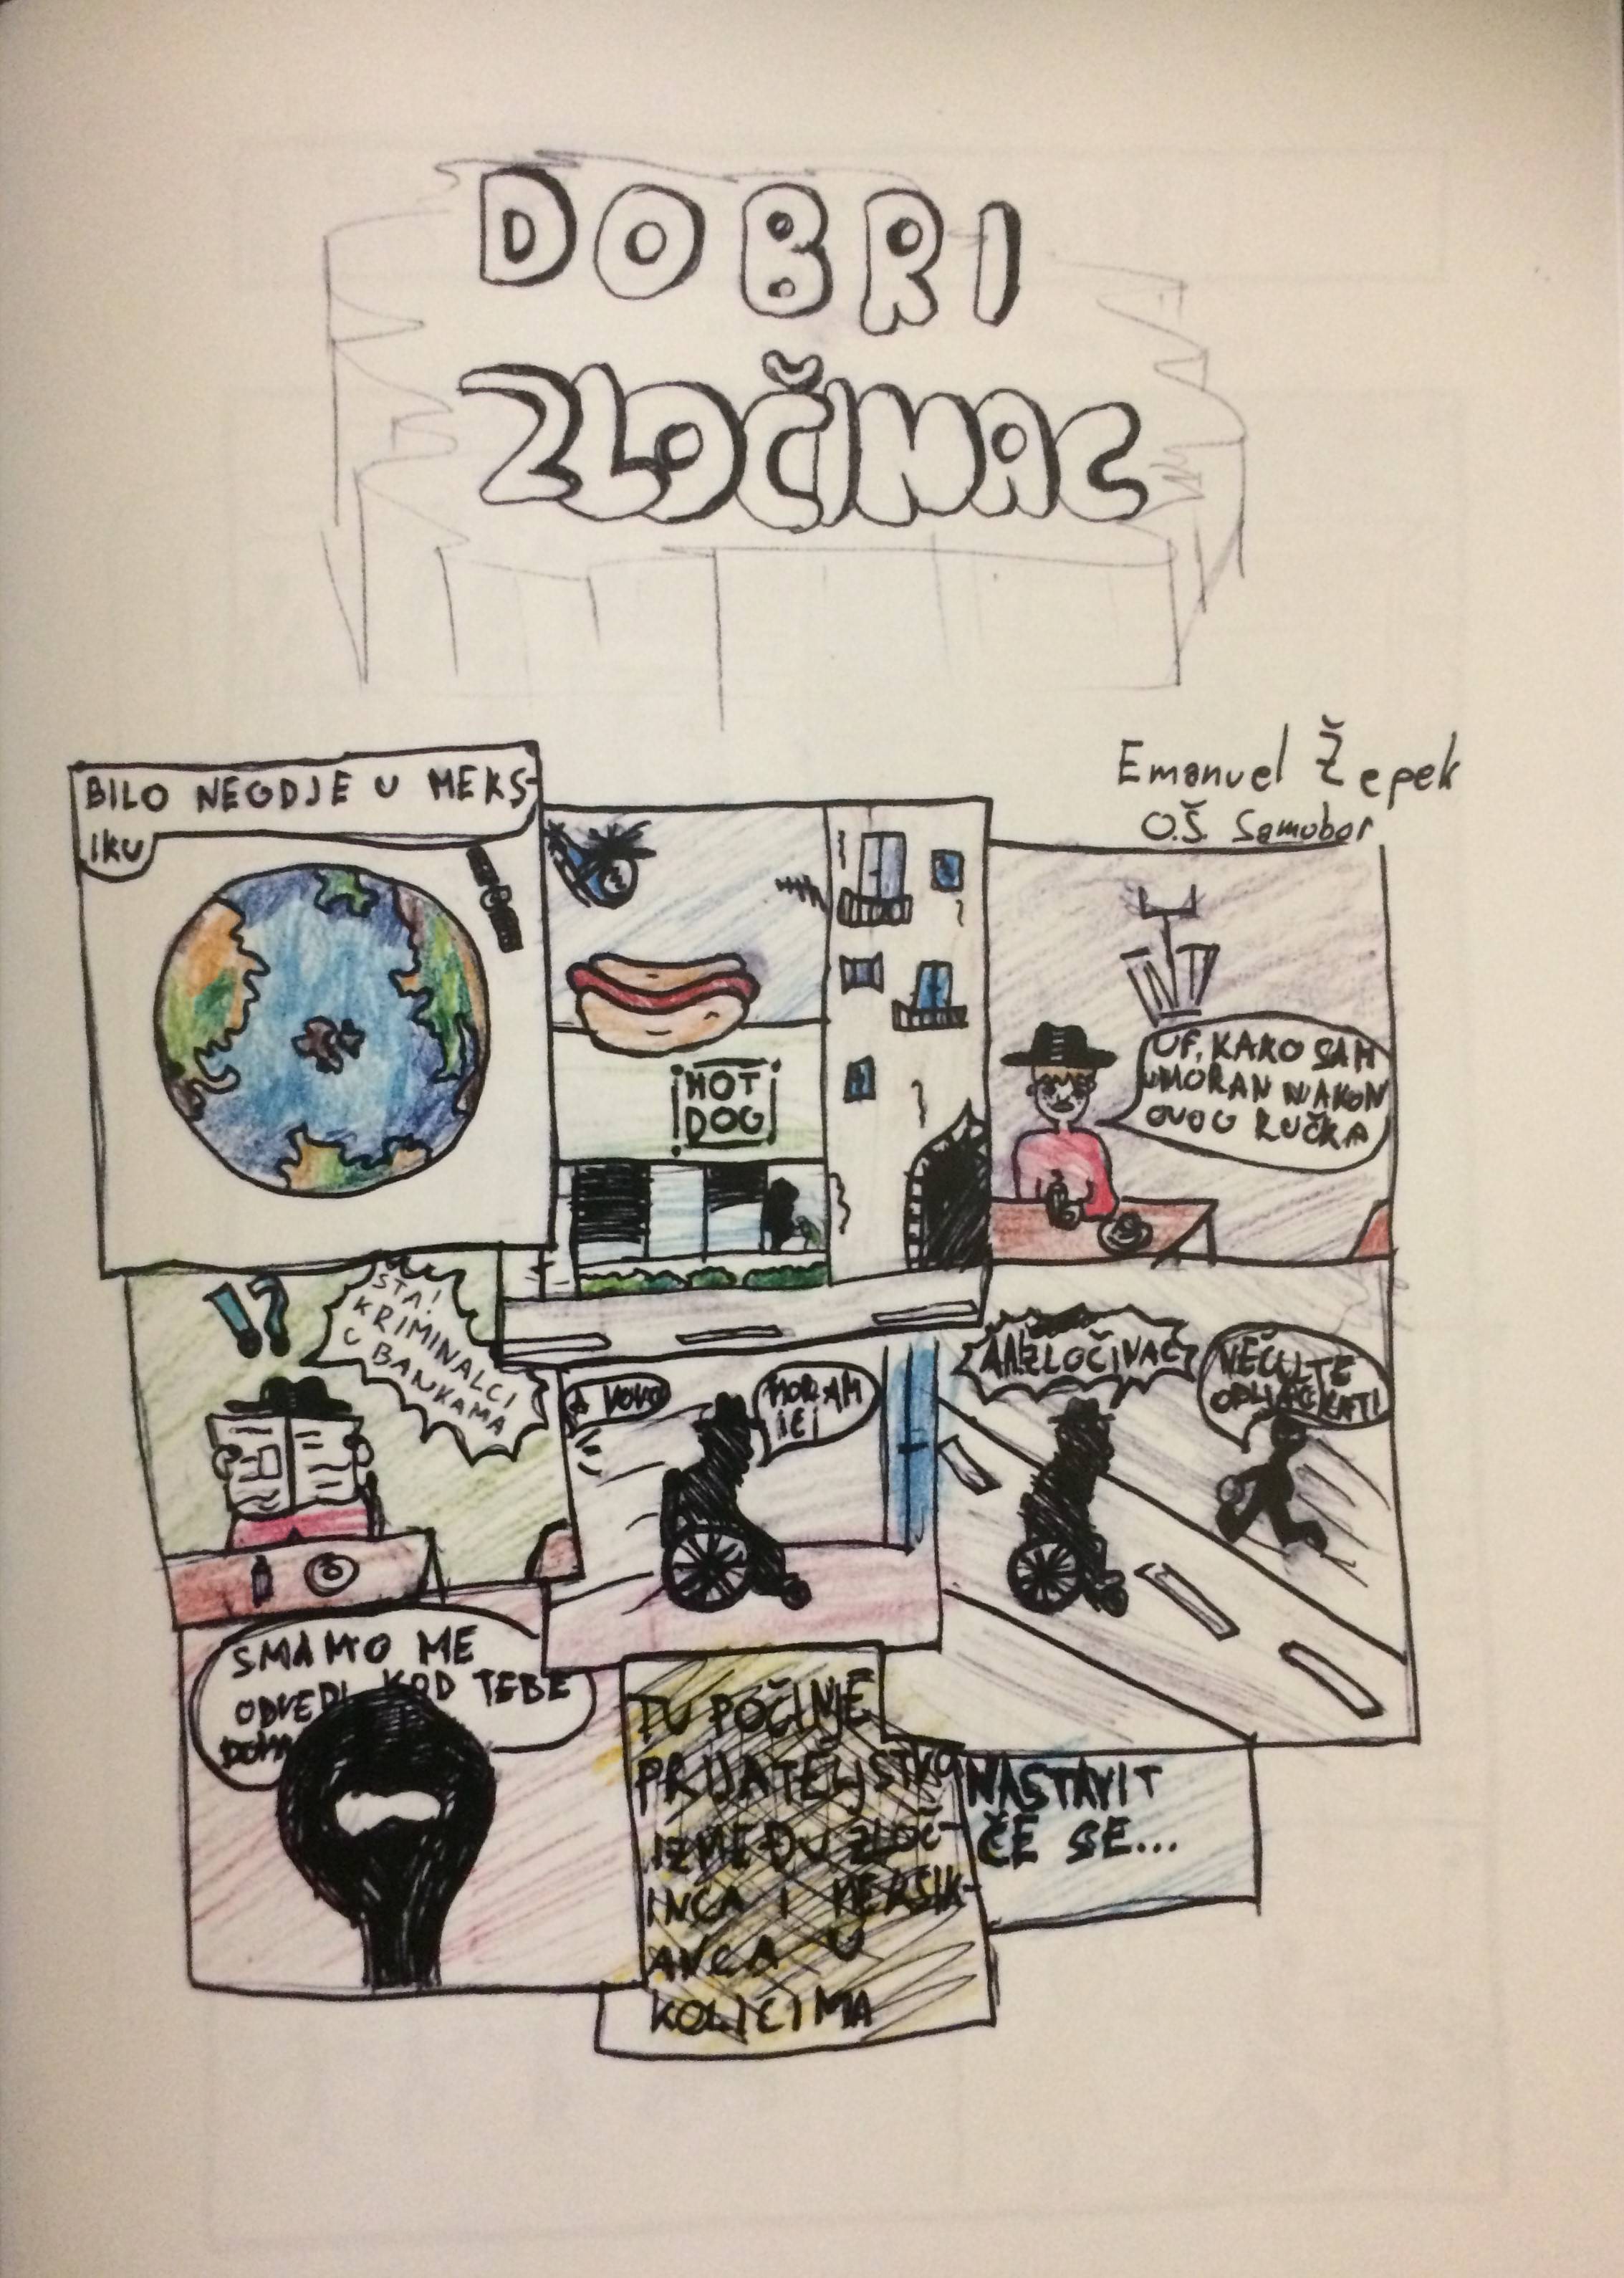 DOBRI
ZLOČINAC
Emanuel Žepek
O.Š. Samobor
BILO NEGDJE U MEKS-
IKU
HOT
DOG
UF, KAKO SAM
UMORAN NAKON
OVOG RUČKA
!?
ŠTA!
KRIMINALCI
U BANKAMA
A
MORAM
IĆI
ZLOČINAC
NEĆU TE
OPLJAČKATI
SMAMO ME
ODVEDI KOD TEBE
DOMA
TU POČINJE
PRIJATELJSTVO
IZMEĐU ZLOČ-
INCA I MEKSIK-
ANCA U
KOLICIMA
NASTAVIT
ČE SE...